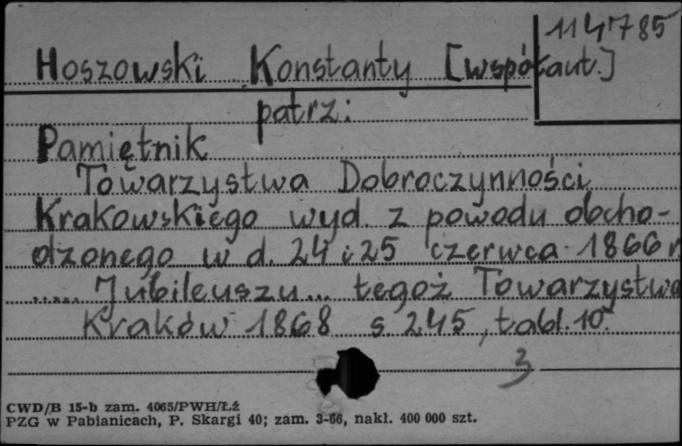 114785
Hoszowski Konstanty [współaut.]
patrz:
Pamiętnik
Towarzystwa Dobroczynności
Krakowskiego wyd. z powodu obcho-
dzonego w d. 24 i 25 czerwca 1866 r
..... Jubileuszu... tegoż Towarzystwa
Kraków 1868 s 245, tabl. 10.
3
CWD/B 15-b zam. 4065/PWH/Łź
PZG w Pabianicach, P. Skargi 40; zam. 3-66, nakl. 400 000 szt.